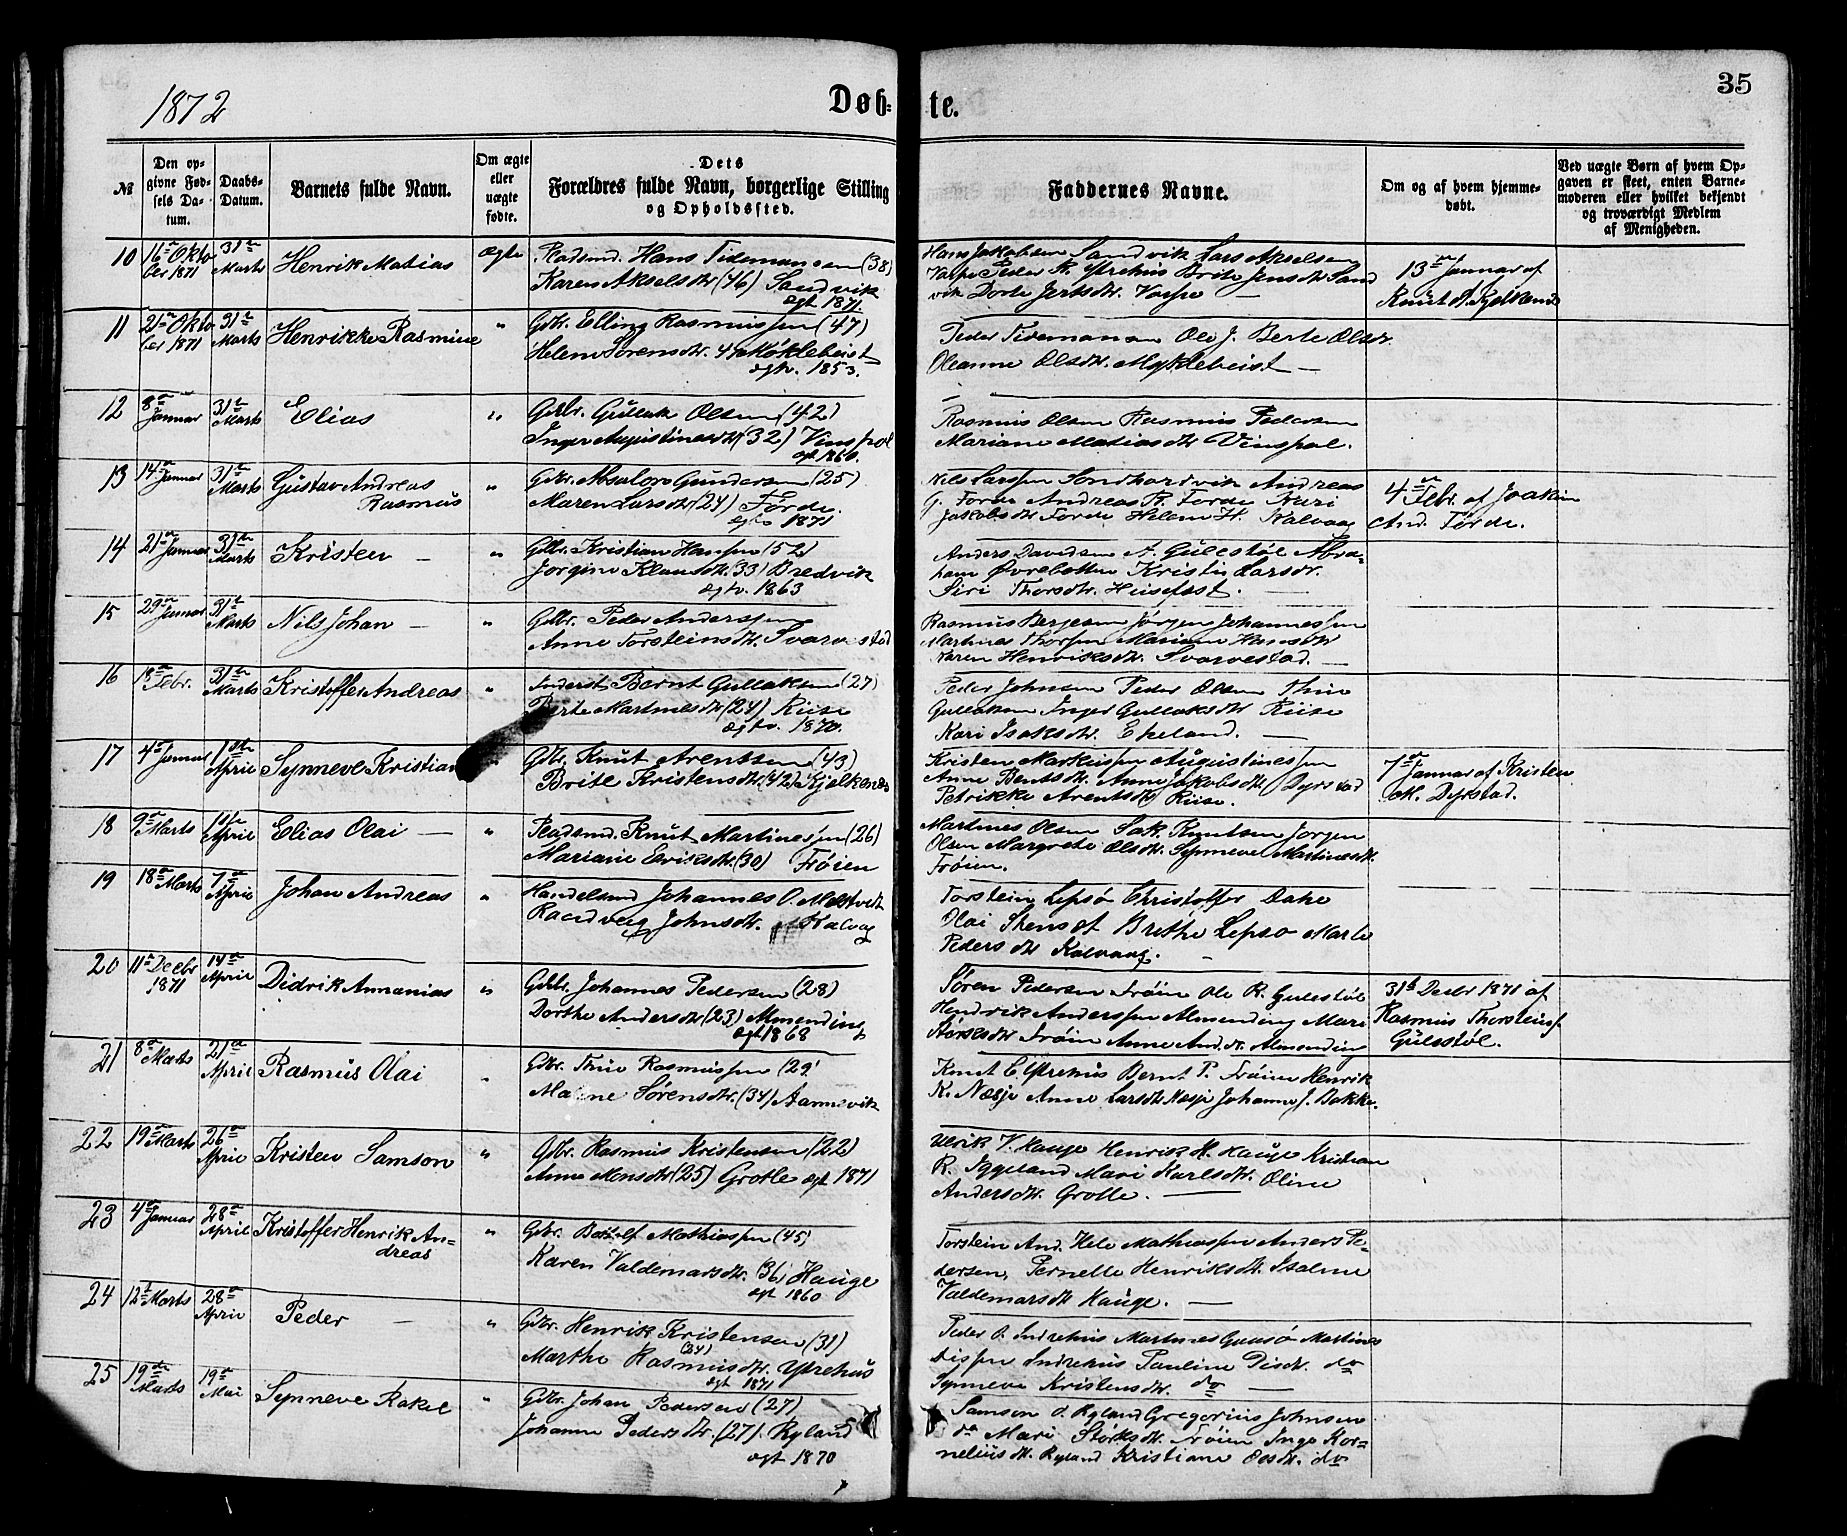 1872
Døb-
te.
35
№
Den op-
givne Fød-
sels Da-
tum.
Daabs-
Datum.
Barnets fulde Navn.
Om ægte
eller
uægte
fødte.
Dets
Forældres fulde Navn, borgerlige Stilling
og Opholdssted.
Faddernes Navne.
Om og af hvem hjemme-
døbt.
Ved uægte Børn af hvem Op-
gaven er skeet, enten Barne-
moderen eller hvilket bekjendt
og troværdigt Medlem
af Menigheden.
10
16de Okto
ber 1871
31te
Marts
Henrik Matias
Ægte
Pladsmd. Hans Tidemansen (38)
Karen Akselsdtr (46) Sandvik
egt 1871.
Hans Jakobsen Sandvik Lars Akselsen
Peder Ytrehus Brite Jensdtr Sand
vik Dorte
13de Januar af
Knut A. Kjelkenes
11
21de Okto
ber 1871
31te
Marts
Henrikke Rasmine
"
Gdbr. Elling Rasmussen (47)
Helene Sørensdtr. 44 Møklebeist
egtv. 1853.
Peder Tidemansen Ole J. Berte Olsdtr.
Oleanne Olsdtr. Myklebeist —
12
8de
Januar
31te
Marts
Elias
"
Gdbr. Gullak Olsen (42)
Inger Augustinusdtr (32) Vinspol
egt 1860.
Rasmus Olsen Rasmus Pedersen
Mariane Matiasdtr Vinspol.
13
14de Januar
31te
Marts
Gustav Andreas
Rasmus
"
Gdbr. Absalon Gundersen (25)
Maren Larsdtr (24) Førde.
egtv 1871
Nils Larssen Andreas
G. Førde Andreas R. Førde Kari
Jakobsdtr Førde Helene H. Kalvaag
4de Febr. af Joakim
And. Førde.
14
21de Januar
31te
Marts
Kristen —
"
Gdbr. Kristian Hansen (52)
Jørgine Klausdtr. (33) Bredvik
egtv. 1863
Anders Davidsen A. Gulestøl Abra-
ham Øvrebotten Kristi Larsdtr.
Siri Thorsdtr. Husefest. —
15
29de Januar
31te
Marts
Nils Johan —
"
Gdbr. Peder Anderssen
Anne Torsteinsdtr. Svarvestad
Rasmus Børgesen Jørgen Johannessen
Martinus Thorsen Mariane Hansdtr
Karen Henriksdtr. Svarvestad. —
16
18de
Febr.
31te
Marts
Kristoffer Andreas
"
Inderst Bernt Gullaksen (27)
Berte Martinusdtr (24) Riise
egtv. 1870.
Peder Johnsen Peder Olsen Thue
Gullaksen Inger Gullaksdtr Riise
Kari Isaksdtr. Ekeland. —
17
4de Januar
1ste
April
Synneve Kristian
Gdbr. Knut Arentsen (43)
Brite Kristensdtr. (42) Kjelkenes
Kristen Markussen Augustinussen
Anne Bentsdtr. Anne Jakobsdtr Dyrstad
Petrikke Arentsdtr Riise.
7de Januar af Kristen
M. Dyrstad.
18
9de Marts
1ste
April
Elias Olai —
"
Pladsmd. Knut Martinussen (26)
Mariane Eriksdtr. (30) Frøien
Martines Olsen Sak. Knutsen Jørgen
Olsen Margrete Olsdtr. Synneve Martinusdtr.
Frøien.
19
18de Marts
7de
April
Johan Andreas
"
Handelsmd Johannes O. Melstvedt
Randveig Johnsdtr. Kalvag
Torstein Lepsø Christoffer Dahe
Olai Brithe Lepsø Marte
Pedersdtr Kalvaag.
20
11te Decbr
1871
14de
April
Didrik Annanias
"
Gdbr. Johannes Pedersen (28)
Dorthe Andersdtr (23) Almending
egt 1868
Søren Pedersen Frøien Ole R. Gulestøl
Hendrik Anderssen Almending Mari
Størksdtr Frøien Anne And.dtr. Almending
31te Decbr 1871 af
Rasmus Thorsteinss.
Gulestøl.
21
8de
Marts
21de
April
Rasmus Olai
"
Gdbr. Thue Rasmussen (29)
Malene Sørensdtr. (34) Aannevik
Knut C. Ytrehus Bernt P. Frøien Henrik
K. Næsje Anne Larsdtr Næsje Johanne J. Bakke.
22
19de Marts
26de
April
Kristen Samson
"
Gdbr. Rasmus Kristensen (22)
Anne Monsdtr (25) Grotle egt 1871
Ulrik V. Hauge Henrik M. Hauge Kristian
R. Iggeland Mari Karlsdtr. Oline
Andersdtr. Grotle. —
23
4de Januar
28de
April
Kristoffer Henrik An-
dreas
"
Gdbr. Botolf Mathiassen (45)
Karen Valdemarsdtr. (36) Hauge
egt 1860
Torstein And. Hele Mathiassen Anders Pe-
dersen, Pernelle Henriksdtr. Isaline
Valdemarsdtr Hauge. —
24
12te Marts
28de
April
Peder —
"
Gdbr. Henrik Kristensen (31)
Marthe Rasmusdtr. (24) Ytrehus
egt 1871
Peder O. Indrehus Martines Gaasø Martines
Indrehus Pauline do
Synneve Kristensdtr. do —
25
19de
Marts
19de
Mai
Synneve Rakel
"
Gdbr. Johan Pedersen (27)
Johanne Pedersdtr. (27). Ryland
egt 1870
Samson O. Ryland Gregorius Johnsen
do Mari Størksdtr. Frøien Inge Kor-
neliusdtr. Ryland Kristiane Olsdtr. do